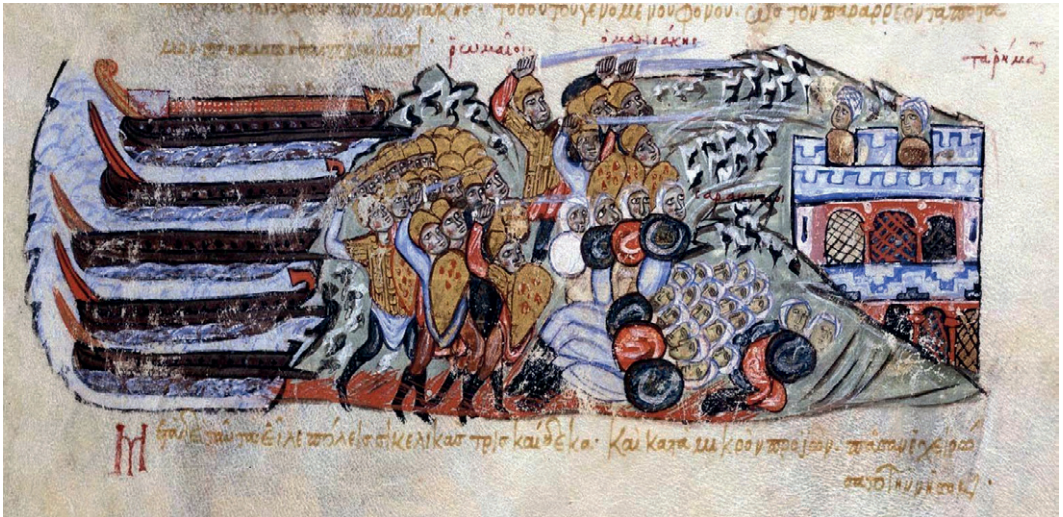 μανιάκης· τοσούτου γενομένου φόνου· ὡς τὸν παραρρέοντα ποτα
μὸν
ῥωμαῖοι· ὁ μανιάκης
τὰ ρήμα
σαρακηνοί
Μετὰ δὲ ταῦτα εἷλε πόλεις σικελικὰς τρισκαίδεκα· καὶ κατὰ μικρὸν προϊὼν· πᾶσαν ἐχειρώ
σατο τὴν νῆσον·